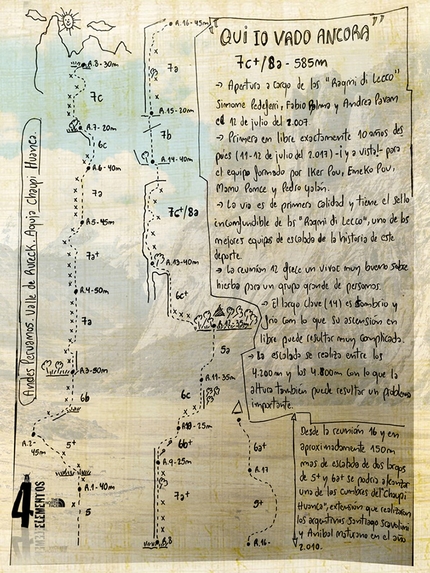 "QUI IO VADO ANCORA"
7c+/8a - 585m
→ Apertura a cargo de los "Ragni di Lecco"
Simone Pedeferri, Fabio Palma y Andrea Pavan
el 12 de julio del 2.007
→ Primera en libre exactamente 10 años des
pués (11-12 de julio del 2.017) -¡y a vista!- para
el equipo formado por Iker Pou, Eneko Pou,
Manu Ponce y Pedro Galán.
→ La vía es de primera calidad y tiene el sello
inconfundible de los "Ragni di Lecco", uno de los
mejores equipos de escalada de la historia de este
deporte.
→ La reunión 12 ofrece un vivac muy bueno sobre
hierba para un grupo grande de personas.
→ El largo clave (14) es sombrío y
frío con lo que su ascensión en
libre puede resultar muy complicada.
→ La escalada se realiza entre los
4.200m y los 4.800m con lo que la
altura también puede resultar un problema
importante.
Desde la reunión 16 y en
aproximadamente 150m
mas de escalada de dos largos
de 5+ y 6a+ se podría alcanzar
una de las cumbres del "Chaupi
Huanca", extensión que realizaron
los argentinos Santiago Scavolini
y Anibal Maturano en el año
2.010.
Andes Peruanos. Valle de Rureck. Aguja Chaupi Huanca.
R.8-30m
7c
R.7-20m
6c
R.6-40m
7a
R.5-45m
7a+
R.4-50m
7a
R.3-50m
6b
R.2-
45m
5+
R.1-40m
5
R.16-45m
7a
R.15-20m
7b
R.14-40m
7c+/8a
R.13-40m
6c+
R.12-35m
5a
R.11-35m
6c
R10-25m
6b+
R.9-25m
7a+
R.8
6a+
R.17
5+
R.16-
4
ELEMENTOS